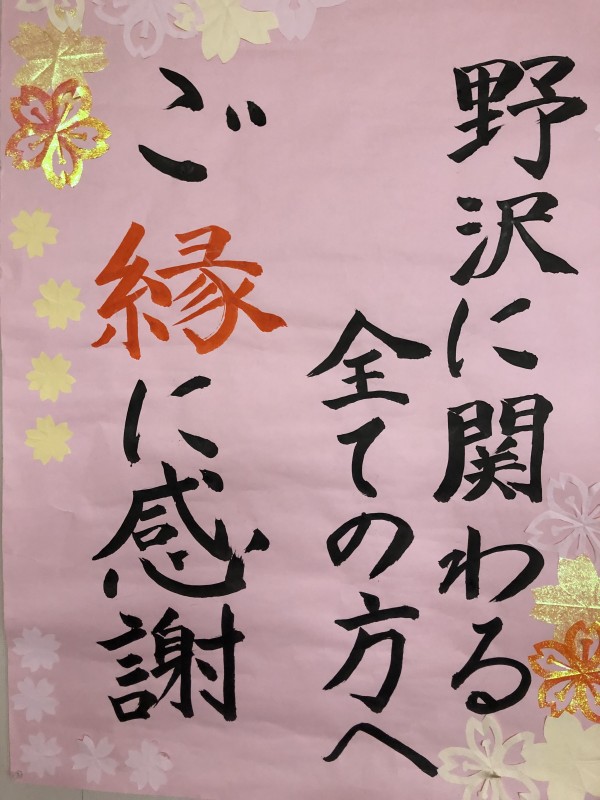 野沢に関わる
全ての方へ
ご縁に感謝